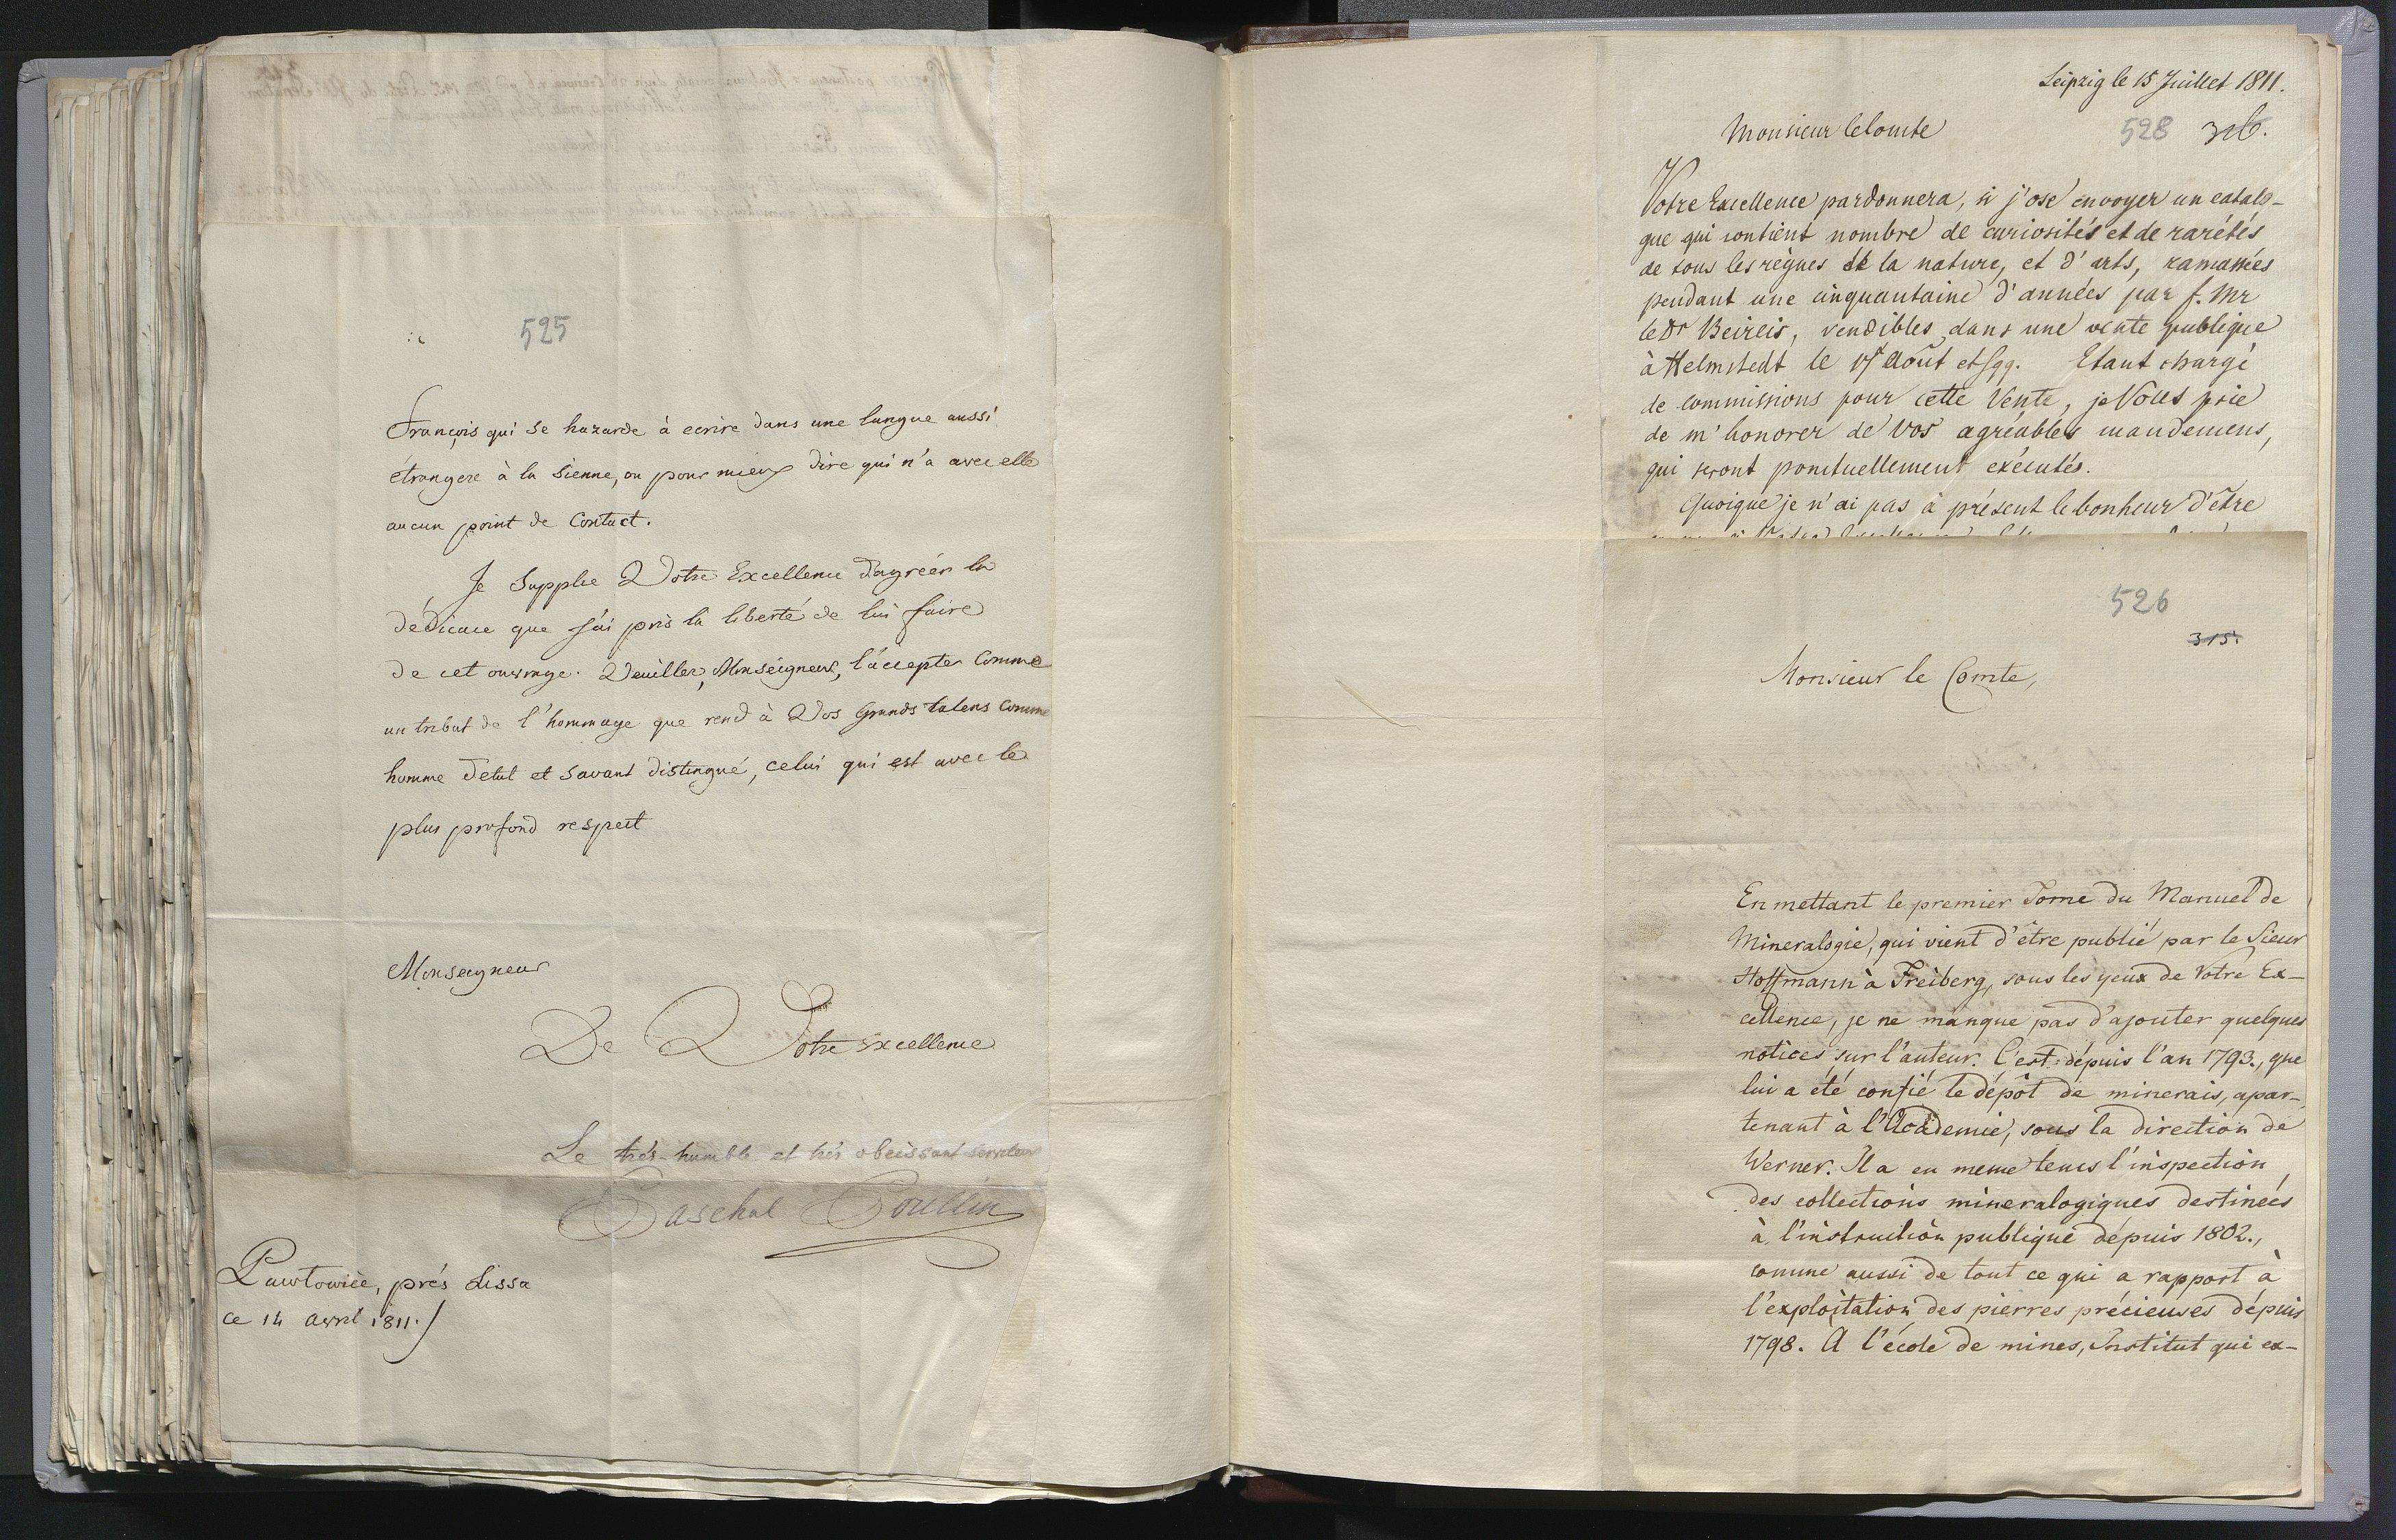 525
François qui se hazarde à ecrire dans une langue aussi
étrangere à la sienne, ou pour mieux dire qui n'a avec elle
aucun point de Contact.
Je Supplie Votre Excellence d'agréer la
dédicace que j'ai pris la liberté de lui faire
de cet ouvrage. Veuillez, Monseigneur, l'accepter Comme
un tribut de l'hommage que rend à Vos Grands talens Comme
homme d'etat et savant distingué, celui qui est avec le
plus profond respect
Monseigneur
De Votre Excellence
Le très-humble et très obeissant serviteur
Paschal Poullin
Pawłowice, prés Lissa
ce 14 avril 1811.
Leipzig le 15 Juillet 1811.
Monsieur le Comte
528 316.
Votre Excellence pardonnera, si j'ose envoyer un catalo-
gue qui contient nombre de curiosités et de rarétés
de tous les règnes de la nature, et d'arts, ramassées
pendant une cinquantaine d'années par f. Mr
le Dr Beireis, vendibles dans une vente publique
à Helmstedt le Août et sqq. Etant chargé
de commissions pour cette Vente, je Vous prie
de m'honorer de Vos agréables mandemens,
qui seront ponctuellement exécutés.
Quoique je n'ai pas à présent le bonheur d'être
526
315.
Monsieur le Comte,
En mettant le premier Tome du Manuel de
Mineralogie, qui vient d'être publié par le Sieur
Hoffmann à Freiberg, sous les yeux de Votre Ex-
cellence, je ne manque pas d'ajouter quelques
notices sur l'auteur. C'est dépuis l'an 1793., que
lui a été confié le dépôt de minerais, apar-
tenant à l'Academie, sous la direction de
Werner. Il a eu meme tems l'inspection
des collections mineralogiques destinées
à l'instruction publique dépuis 1802.,
comme aussi de tout ce qui a rapport à
l'exploitation des pierres précieuses dépuis
1798. A l'école de mines, Institut qui ex-